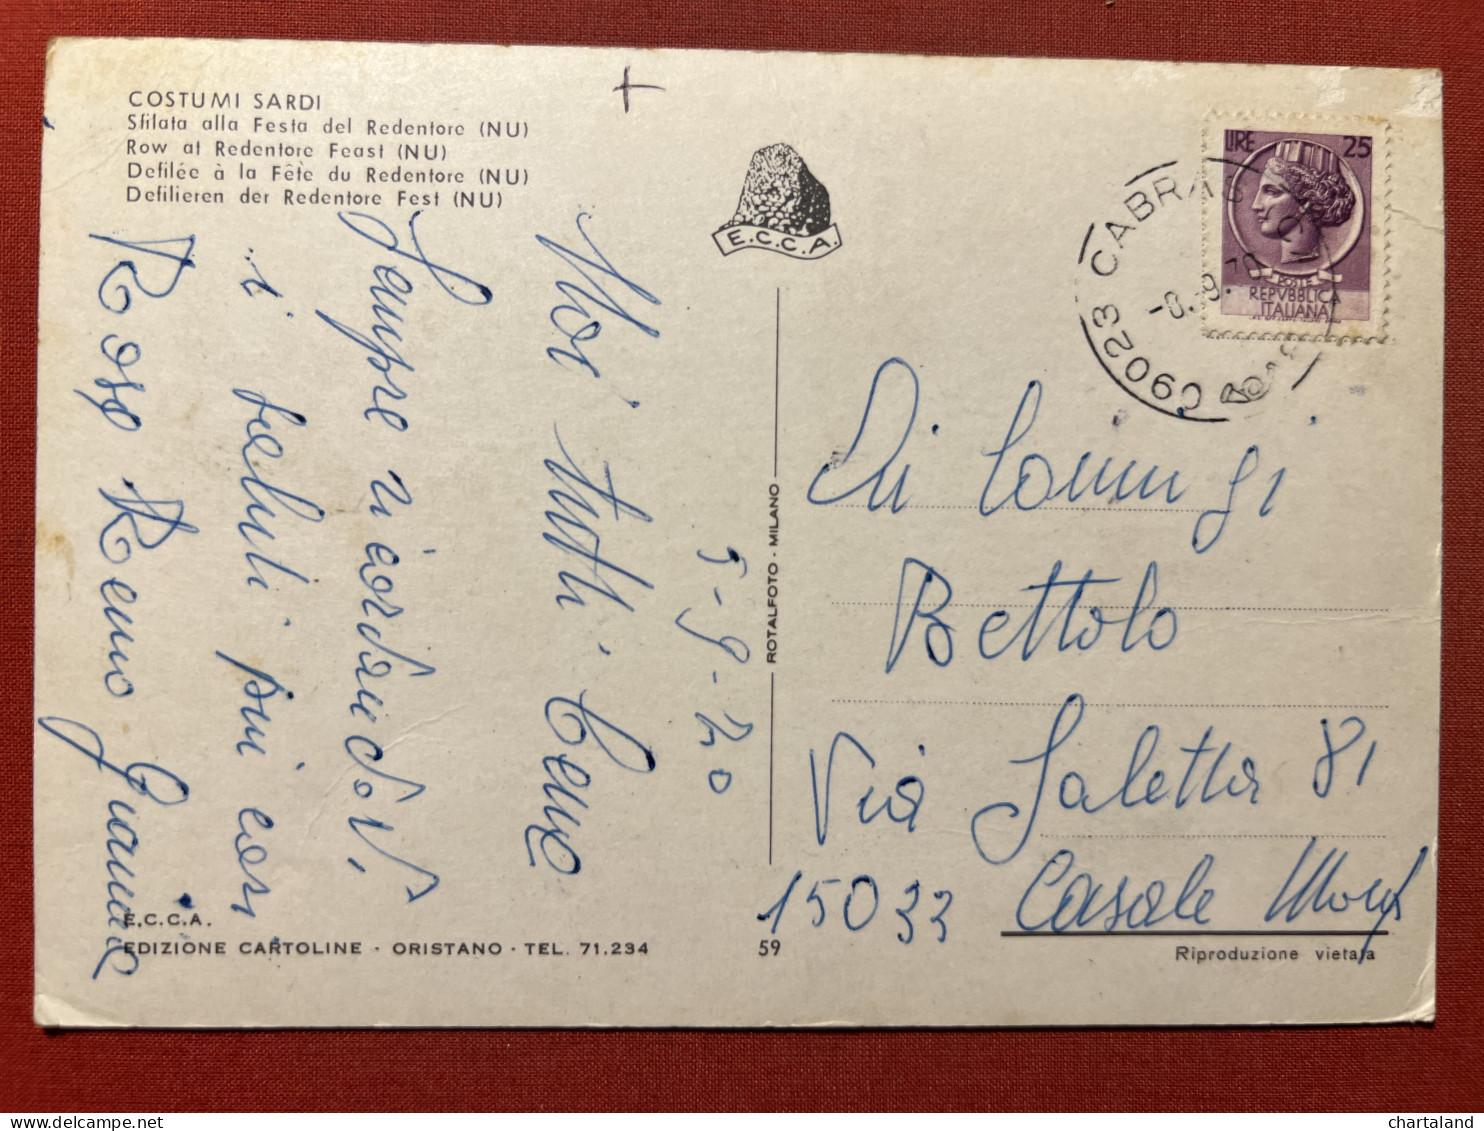 COSTUMI SARDI
Sfilata alla Festa del Redentore (NU)
Row at Redentore Feast (NU)
Defilée à la Fête du Redentore (NU)
Defilieren der Redentore Fest (NU)
E.C.C.A.
LIRE 25
POSTE
REPVBBLICA
ITALIANA
09023 CABRAS
-8.-9.70
5-9-70
Noi tutti bene
Sempre ricordandovi,
i saluti più cari
Rosa Remo Gianna
ROTALFOTO - MILANO
Bettolo
Via Saletta 81
15033 Casale Monf
E.C.C.A.
EDIZIONE CARTOLINE - ORISTANO - TEL. 71.234
59
Riproduzione vietata
chartaland